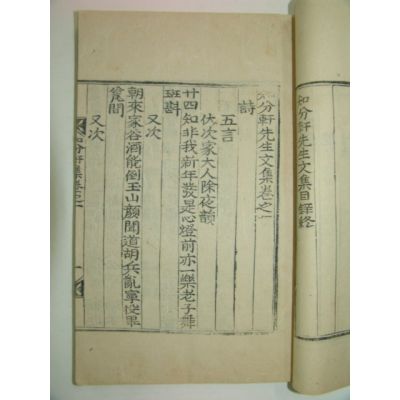 知分軒先生文集目錄終
知分軒先生文集卷之一
詩
五言
伏次家大人除夜韻
廿四知非我新年發是心燈前亦一樂老子舞
班
又次
朝來家谷酒能倒玉山顏聞道胡兵亂寧從
間
又次
知分軒集卷之一
一